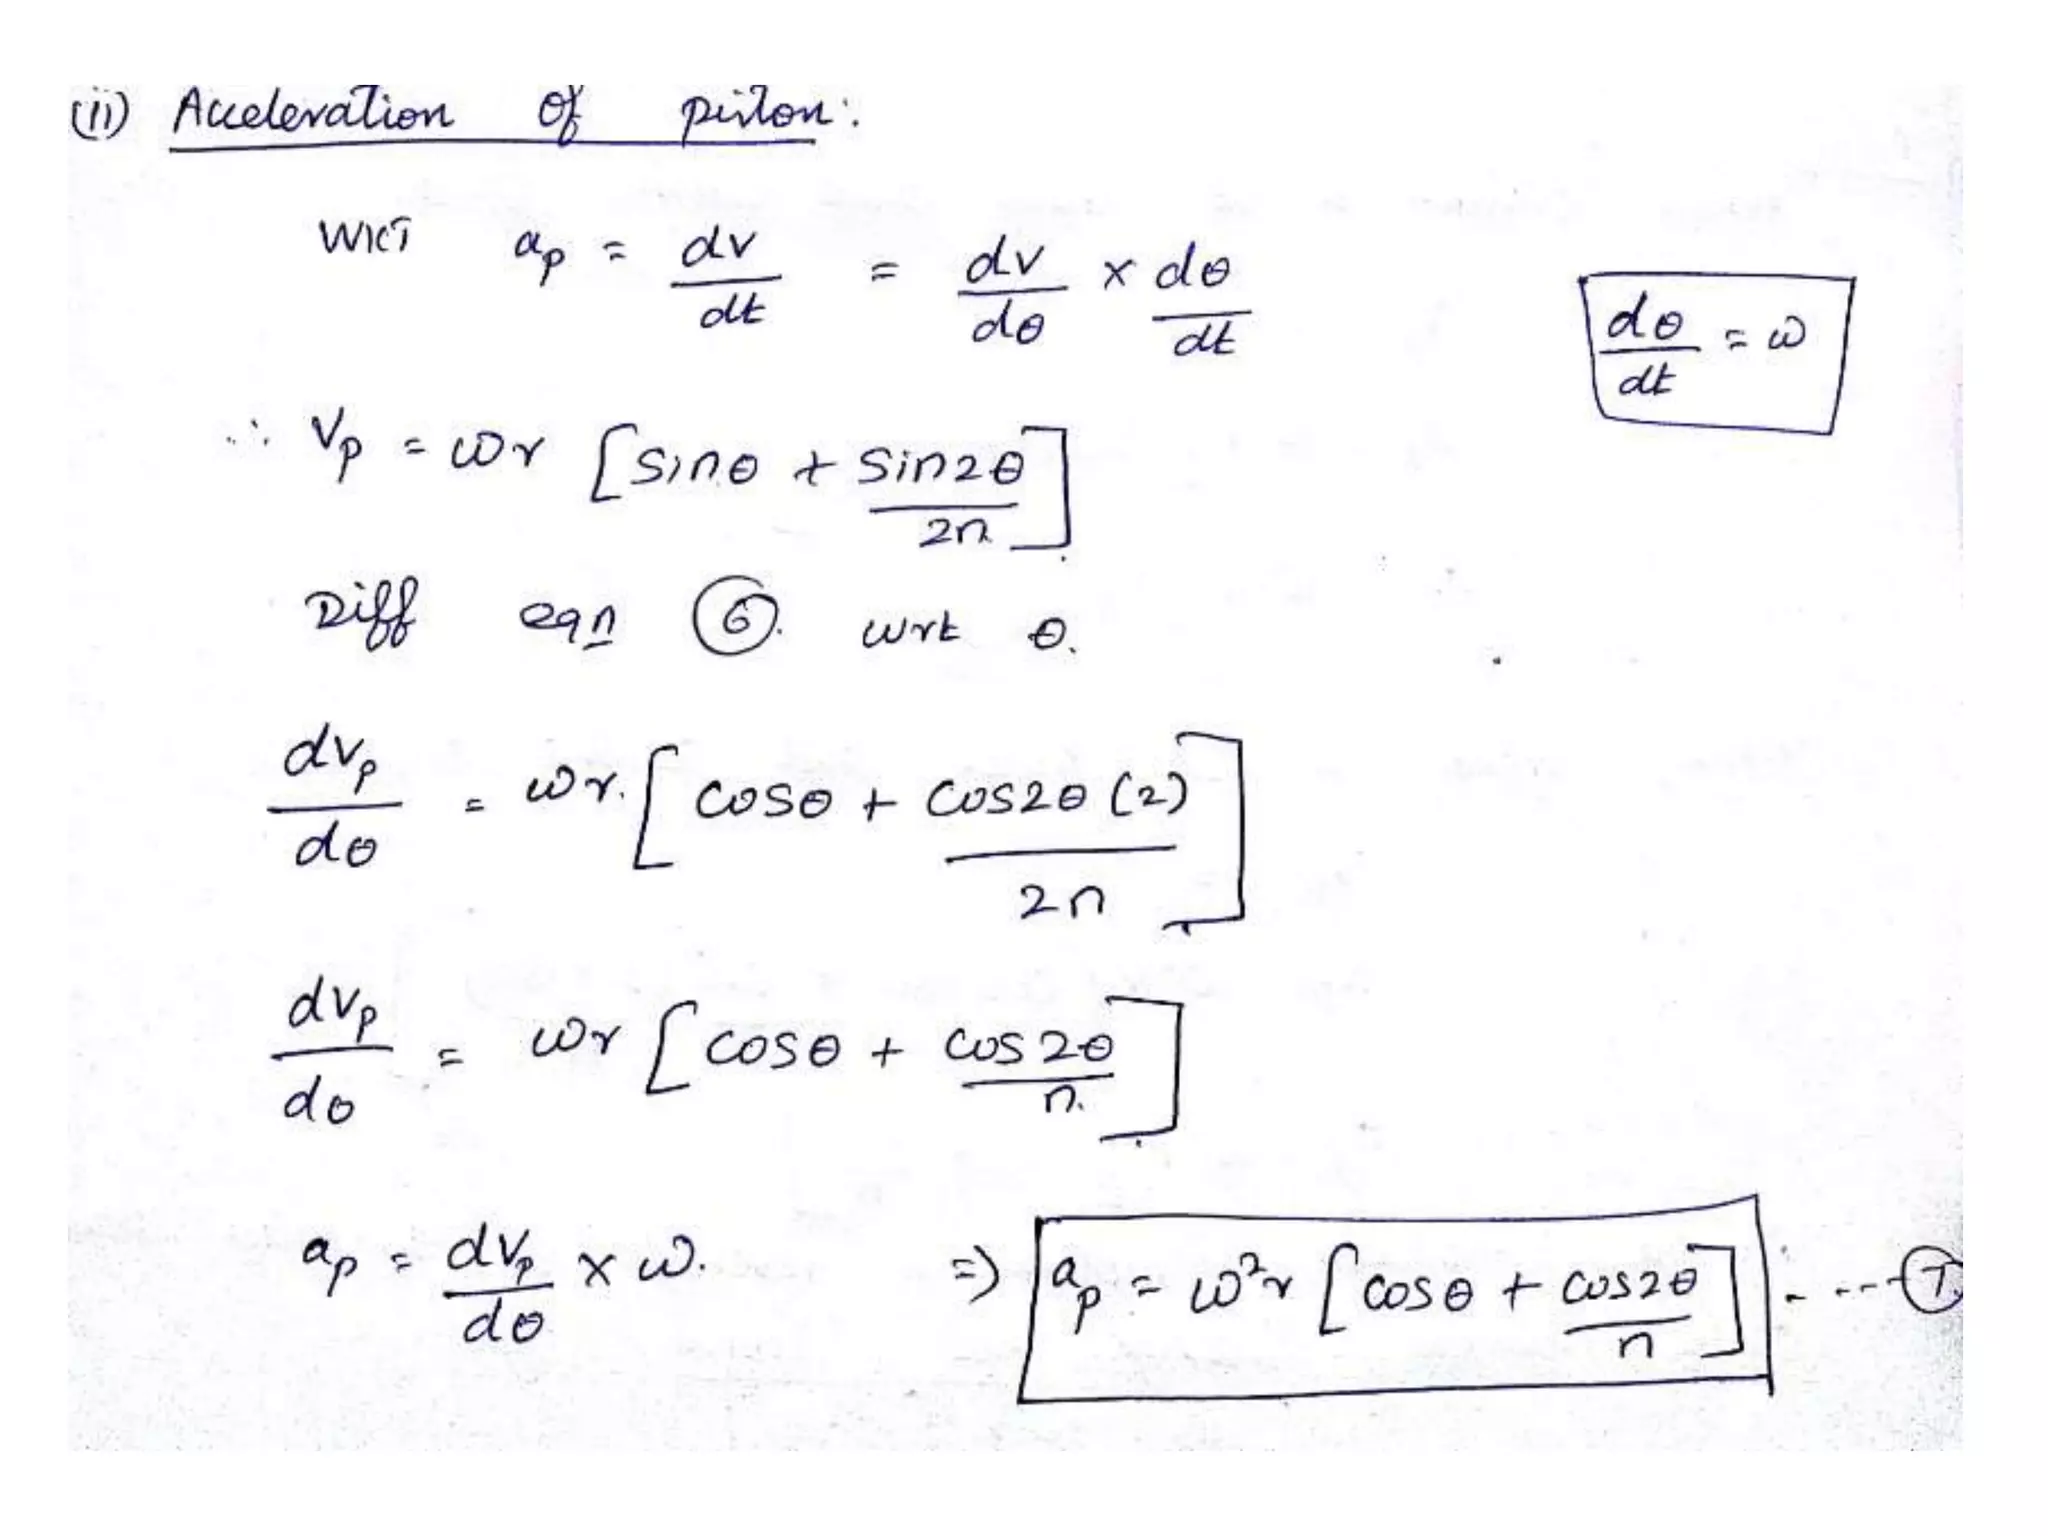 (ii) Acceleration of piston:
WKT ap = dv/dt = dv/dθ × dθ/dt
dθ/dt = ω
∴ Vp = ωr [sinθ + sin2θ/2n]
Diff eqn (6). wrt θ.
dVp/dθ = ωr. [cosθ + cos2θ (2)/2n]
dVp/dθ = ωr [cosθ + cos2θ/n.]
ap = dVp/dθ × ω. => ap = ω²r [cosθ + cos2θ/n] ---- (7)